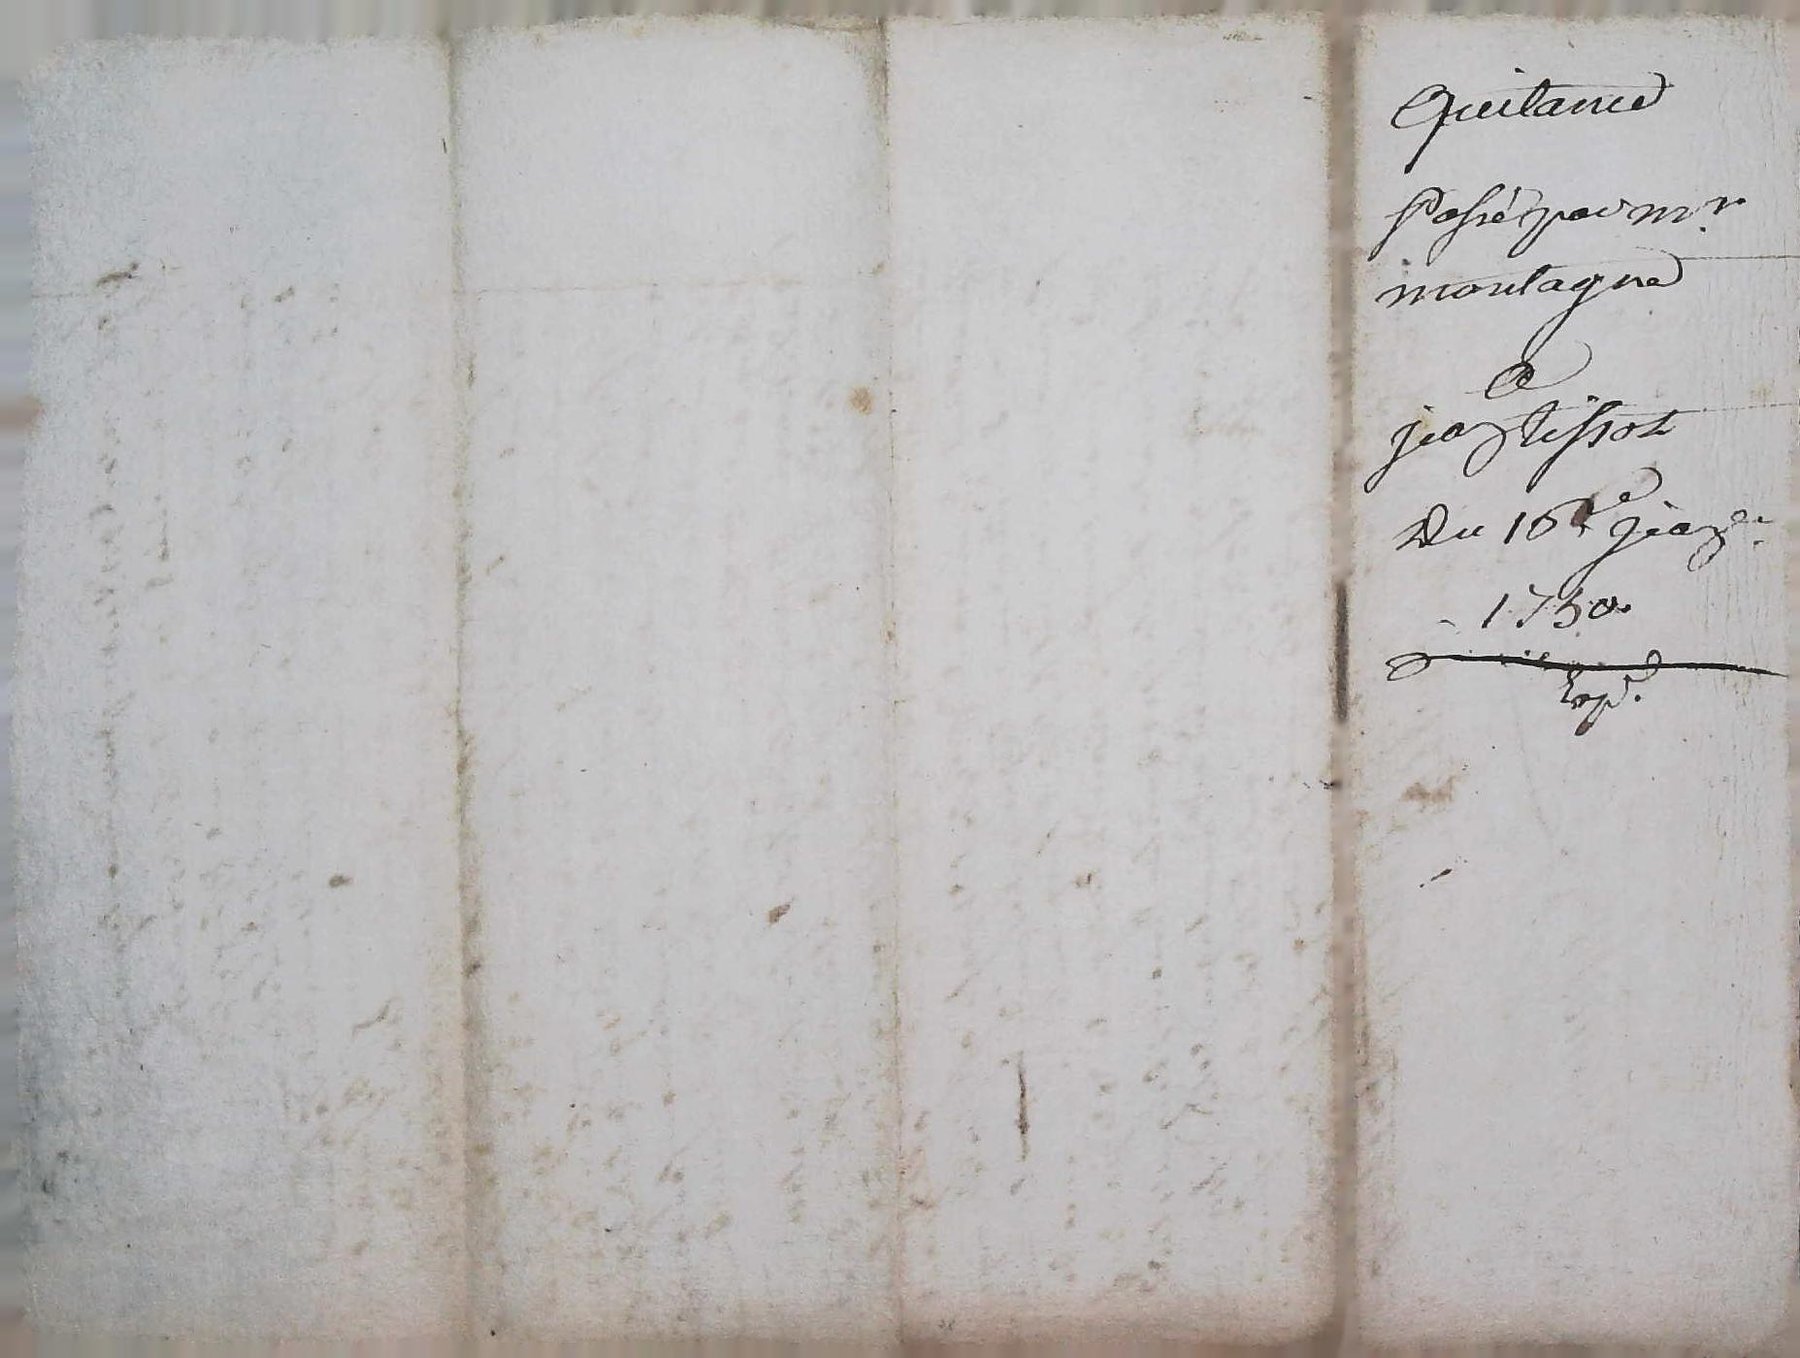 Quitance
Passé par mr
montagne
a
jean tissot
Du 16e jan
1730
Exp.